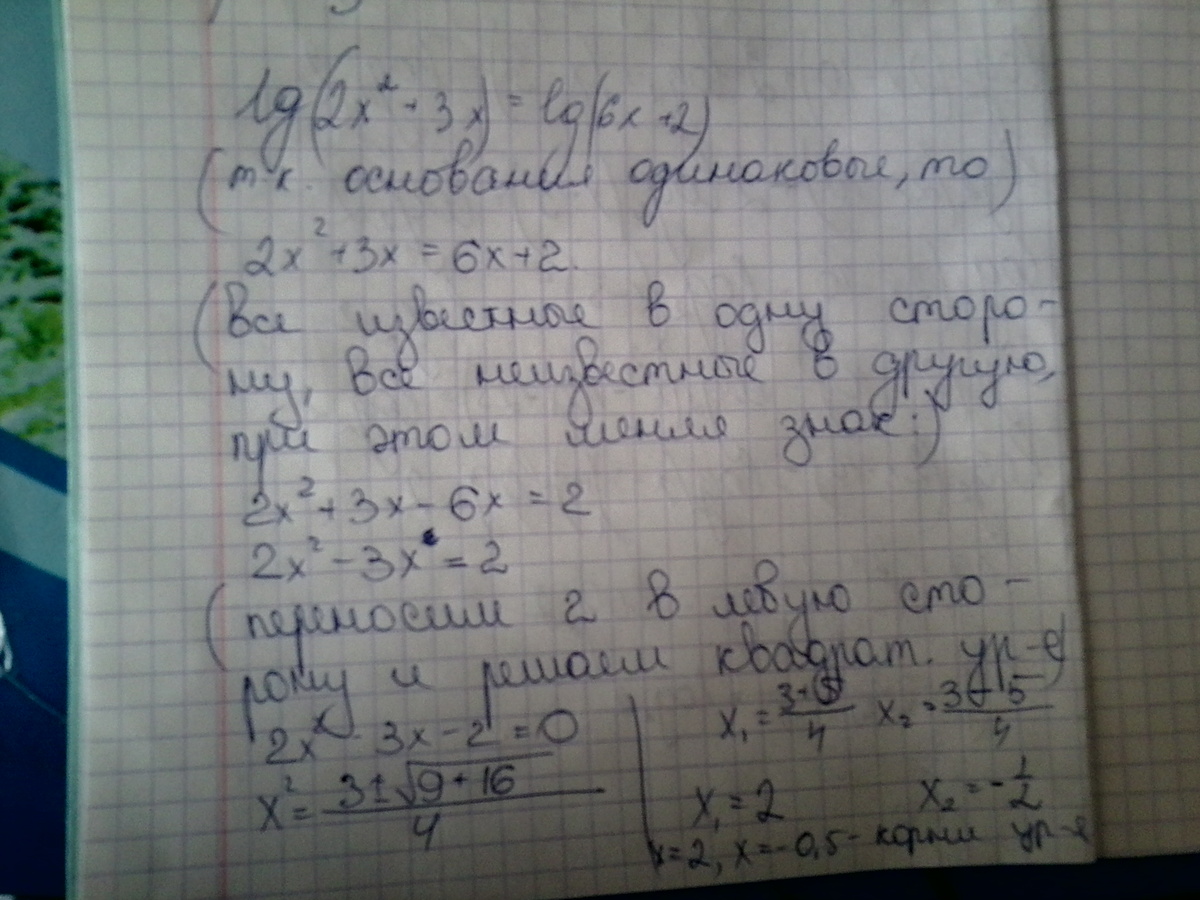 lg(2x² + 3x) = lg(6x+2)
(т.к. основания одинаковые, то)
2x² + 3x = 6x+2.
(Все известные в одну сторо-
ну, все неизвестные в другую,
при этом меняя знак:)
2x² + 3x - 6x = 2
2x² - 3x = 2
(переносим 2 в левую сто-
рону и решаем квадрат. ур-е)
2x² - 3x - 2 = 0
x² = (3 ± √(9 + 16))/4
x₁ = (3+5)/4 x₂ = (3-5)/4
x₁ = 2 x₂ = -1/2
x=2, x=-0,5 - корни ур-я